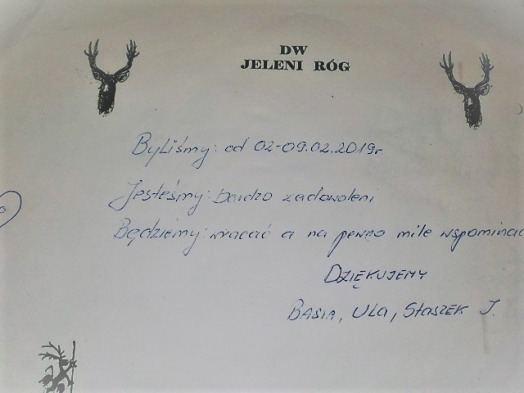 DW
JELENI RÓG
Byliśmy: od 02-09.02.2019r
Jesteśmy: bardzo zadowoleni
Będziemy: wracać a na pewno mile wspominać
DZIĘKUJEMY
BASIA, ULA, STASZEK J.